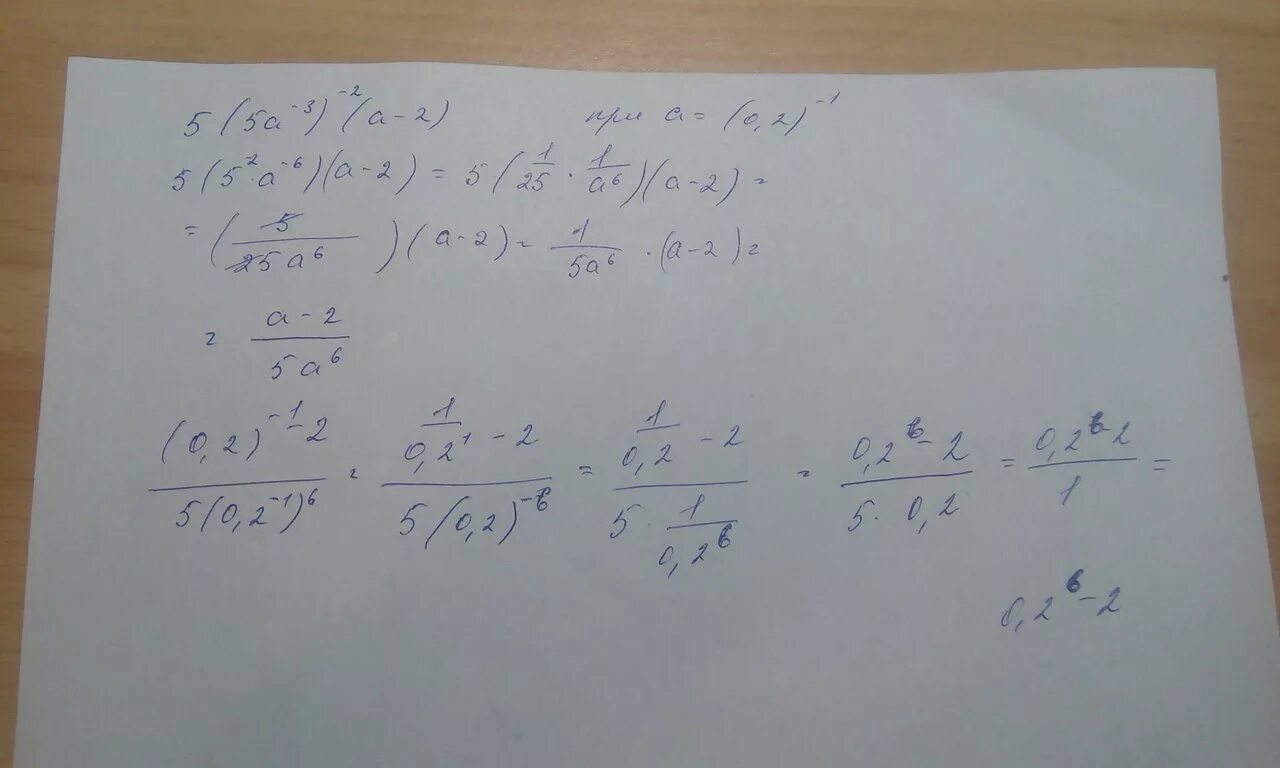 5(5a⁻³)⁻²(a-2) при a = (0,2)⁻¹
5(5²·a⁻⁶)(a-2) = 5(1/25 · 1/a⁶)(a-2) =
= (5/25a⁶)(a-2) = 1/5a⁶ · (a-2) =
= a-2/5a⁶
(0,2)⁻¹-2/5(0,2⁻¹)⁶ = 1/0,2¹ - 2/5(0,2)⁻⁶ = 1/0,2 - 2/5 · 1/0,2⁶ = 0,2⁶-2/5 · 0,2 = 0,2⁶-2/1 =
0,2⁶-2